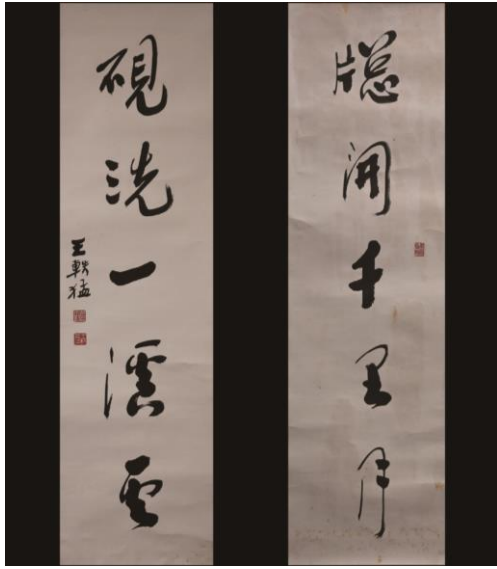 牕開千里月
硯洗一溪雲
王軼猛